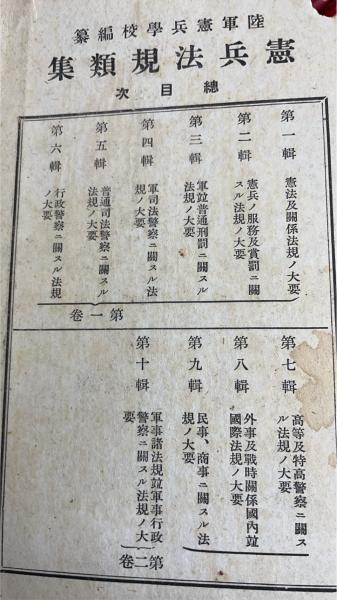 陸軍憲兵學校編纂
憲兵法規類集
總目次
第一輯 憲法及關係法規ノ大要
第二輯 憲兵ノ服務及賞罰ニ關
スル法規ノ大要
第三輯 軍竝普通刑罰ニ關スル
法規ノ大要
第四輯 軍司法警察ニ關スル法
規ノ大要
第五輯 普通司法警察ニ關スル
法規ノ大要
第六輯 行政警察ニ關スル法規
ノ大要
第一卷
第七輯 高等及特高警察ニ關ス
ル法規ノ大要
第八輯 外事及戰時關係國內竝
國際法規ノ大要
第九輯 民事、商事ニ關スル法
規ノ大要
第十輯 軍事諸法規竝軍事行政
警察ニ關スル法規ノ大
要
第二卷